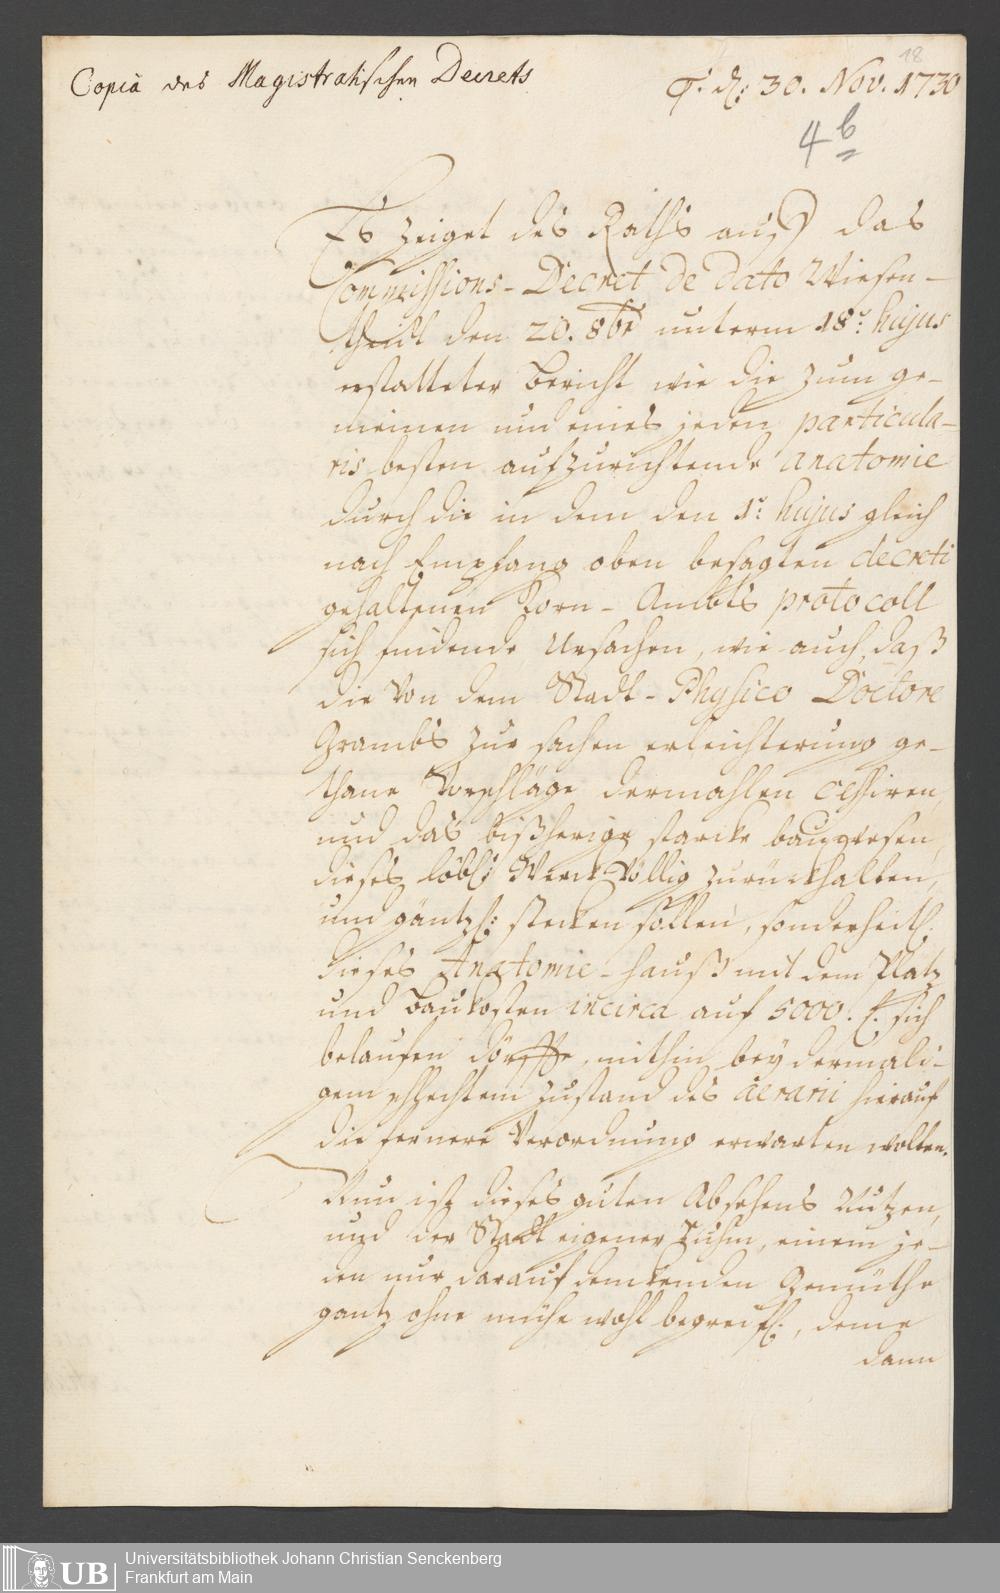 18
Copia des Magistratischen Decrets
d: 30. Nov. 1730
4 b
Es zeiget des Raths auff das
Commissions-Decret de dato Wiesen-
theidt den 20. 8br unterm 18.ⁿ hujus
erstatteter Bericht wie die zum ge-
meinen und eines jeden particula-
ris besten aufzurichtende anatomie
durch die in dem den 1.ⁿ hujus gleich
nach Empfang oben besagten decreti
gehaltenen Korn-Ambts protocoll
sich findende Ursachen, wie auch, daß
die von dem Stadt-Physico Doctore
Grambs zur sachen erleichterung ge-
thane Vorschläge dermahlen cessiren,
und das bißherige starcke bauwesen,
dieses löbl: Werck völlig zurückhalten,
und gäntzl: stecken sollen, sonderheitl.
dieses Anatomie-hauß mit dem Platz
und Baukosten in circa auf 5000. f. sich
belaufen dörffte, mithin bey dermali-
gem schlechtem zustand des aerarii hierauf
die fernere Verordnung erwarten wolten.
Nun ist dieses guten Absehens Nutzen,
und der Stadt eigener Ruhm, einem je-
den nur darauf denckenden Gemüthe
gantz ohne mühe wohl begreifl., deme
dann
UB
Universitätsbibliothek Johann Christian Senckenberg
Frankfurt am Main